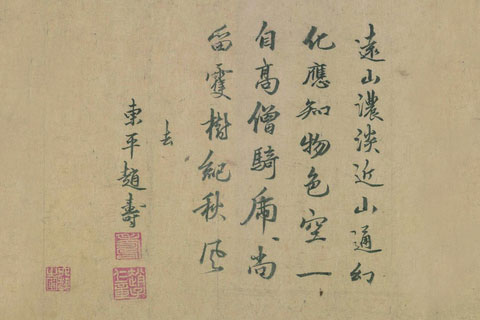 遠山濃淡近山通幻
化應知物色空一
自高僧騎虎尚
留雙樹紀秋風
去
東平趙壽